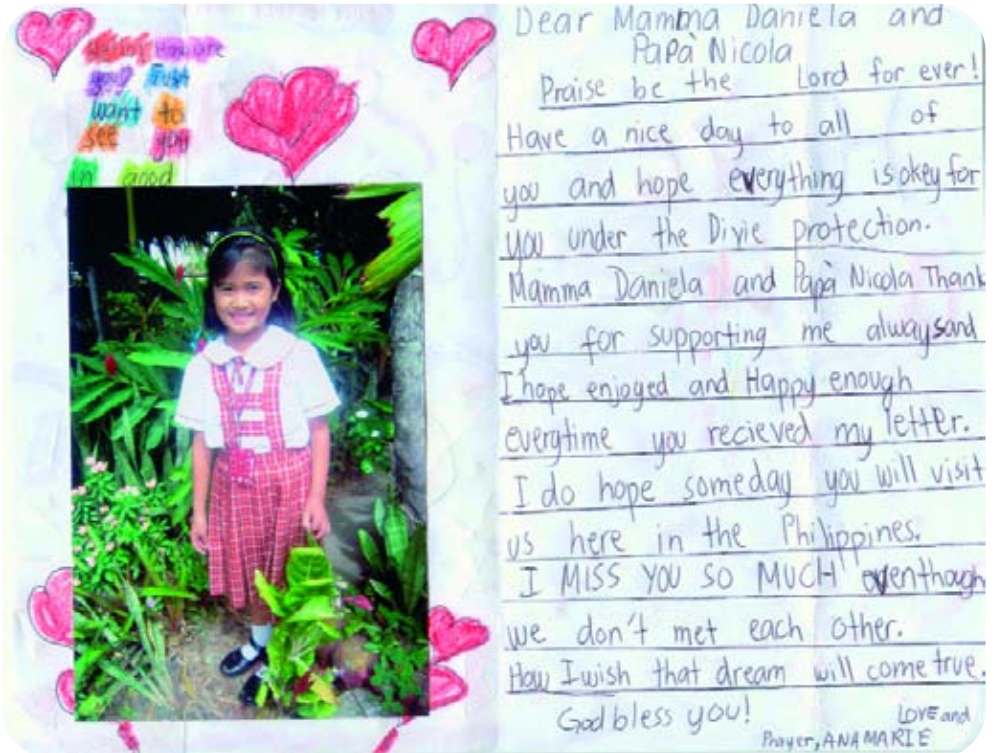 How are
you? Just
want to
see you
in good
Dear Mamma Daniela and
Papà Nicola
Praise be the Lord for ever!
Have a nice day to all of
you and hope everything is okey for
you under the Divie protection.
Mamma Daniela and Papà Nicola Thank
you for supporting me always and
I hope enjoyed and Happy enough
everytime you recieved my letter.
I do hope someday you will visit
us here in the Philippines.
I MISS YOU SO MUCH eventhough
we don't met each other.
How I wish that dream will come true.
God bless you!
LOVE and
Prayer, ANAMARIE